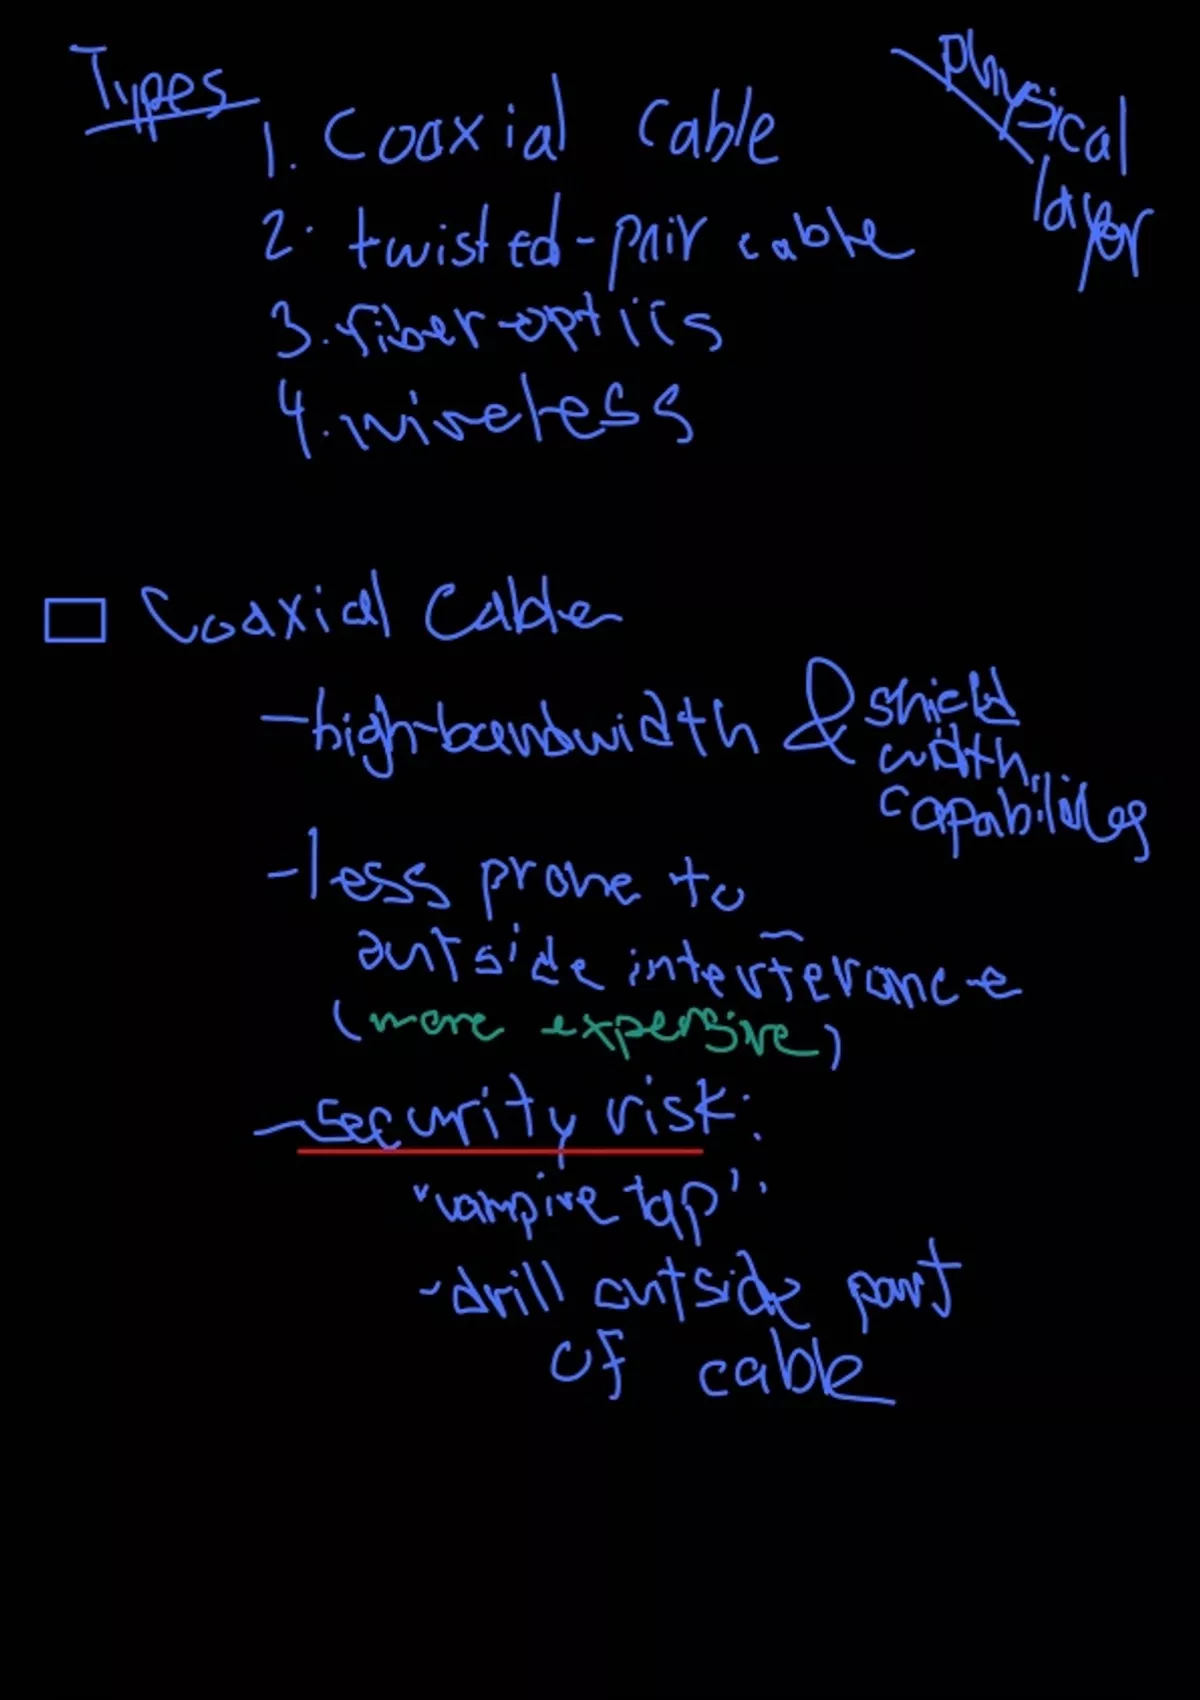 Types
physical
layer
1. Coaxial Cable
2. twisted-pair cable
3. fiber-optics
4. wireless
Coaxial Cable
- high-bandwidth & shield
width
capabilities
- less prone to
outside interferance
(more expensive)
- security risk:
"vampire tap":
- drill outside part
of cable